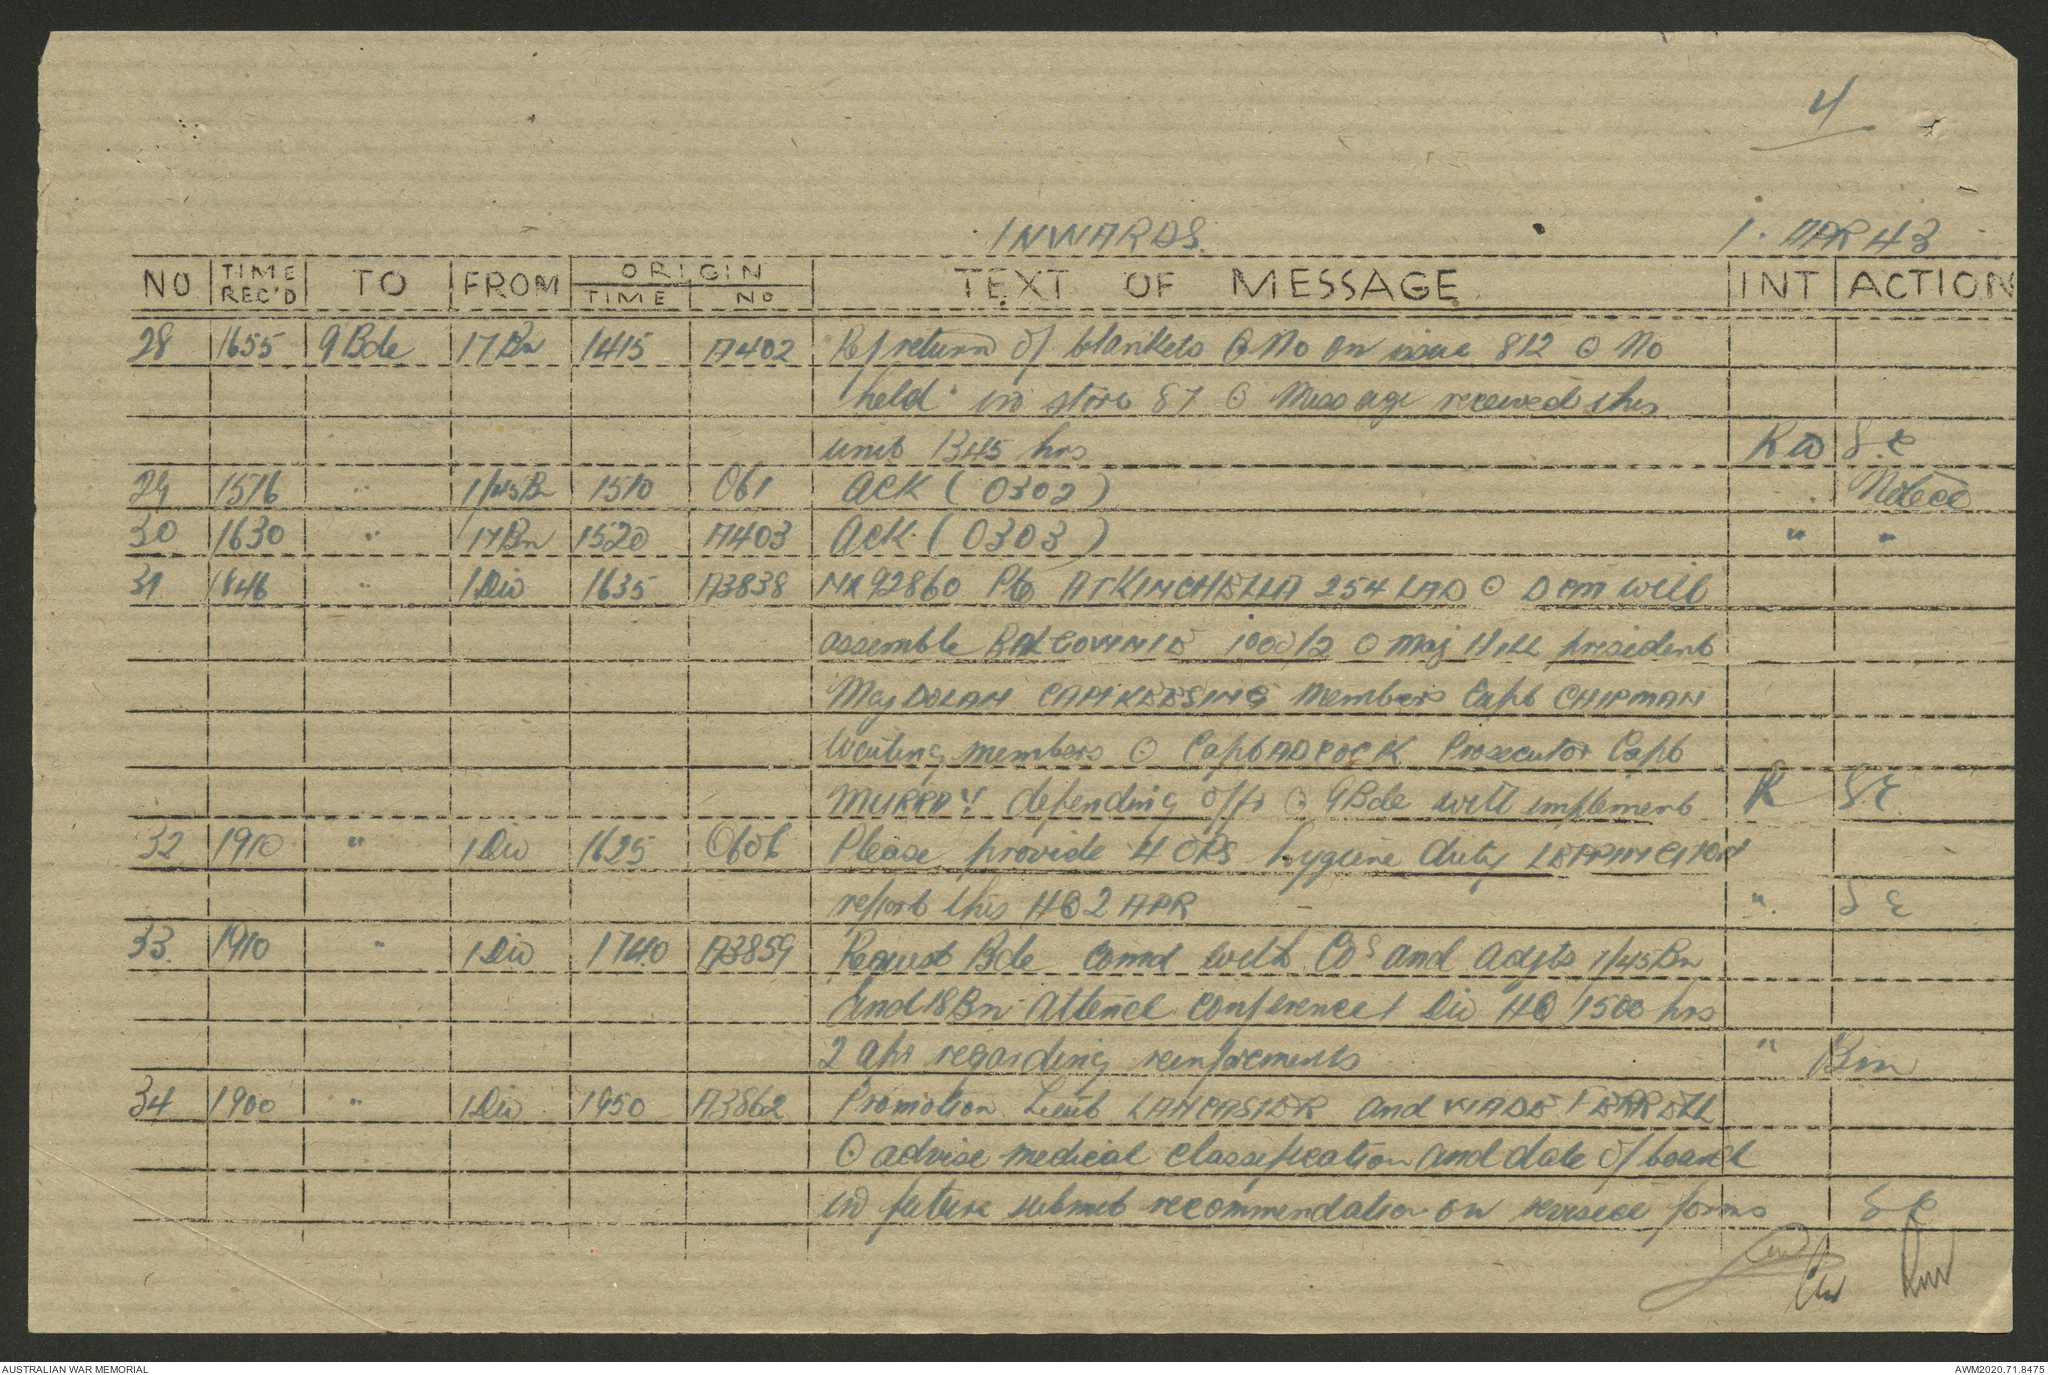 4
INWARDS.
1. APR 43
NO TIME REC'D TO FROM ORIGIN TIME NO TEXT OF MESSAGE INT ACTION
28 1655 9 Bde 17 Bn 1415 A402 Ref return of blankets ⊙ No on issue 812 ⊙ No
held in store 87 ⊙ Message received this
unit 1345 hrs S.C
29 1516 " 1/45 Bn 1510 O61 ACK (0302) Noted
30 1630 " 17 Bn 1520 A403 ACK (0303) " "
31 1646 " 1 Div 1635 A3838 NX92860 Pte 254 LAD ⊙ DCM will
assemble 1000/2 ⊙ Maj Hill president
Maj DOLAN CAPT KEESING members Capt CHIPMAN
waiting members ⊙ Capt ADCOCK Prosecutor Capt
MURRAY defending offr ⊙ 9 Bde will implement R S.C.
32 1910 " 1 Div 1625 O606 Please provide 4 ORs hygiene duty LEPPINGTON
report this HQ 2 APR ". S C
33. 1910 " 1 Div 1740 A3859 Request Bde Comd with COs and Adjts 1/45 Bn
and 18 Bn attend conference 1 Div HQ 1500 hrs
2 Apr regarding reinforcements " Bm
34 1900 " 1 Div 1950 A3862 Promotion Lieut LANCASTER and WADE FERRELL
⊙ advise medical classification and date of board
in future submit recommendation on forms S C
AUSTRALIAN WAR MEMORIAL
AWM2020.71.8475